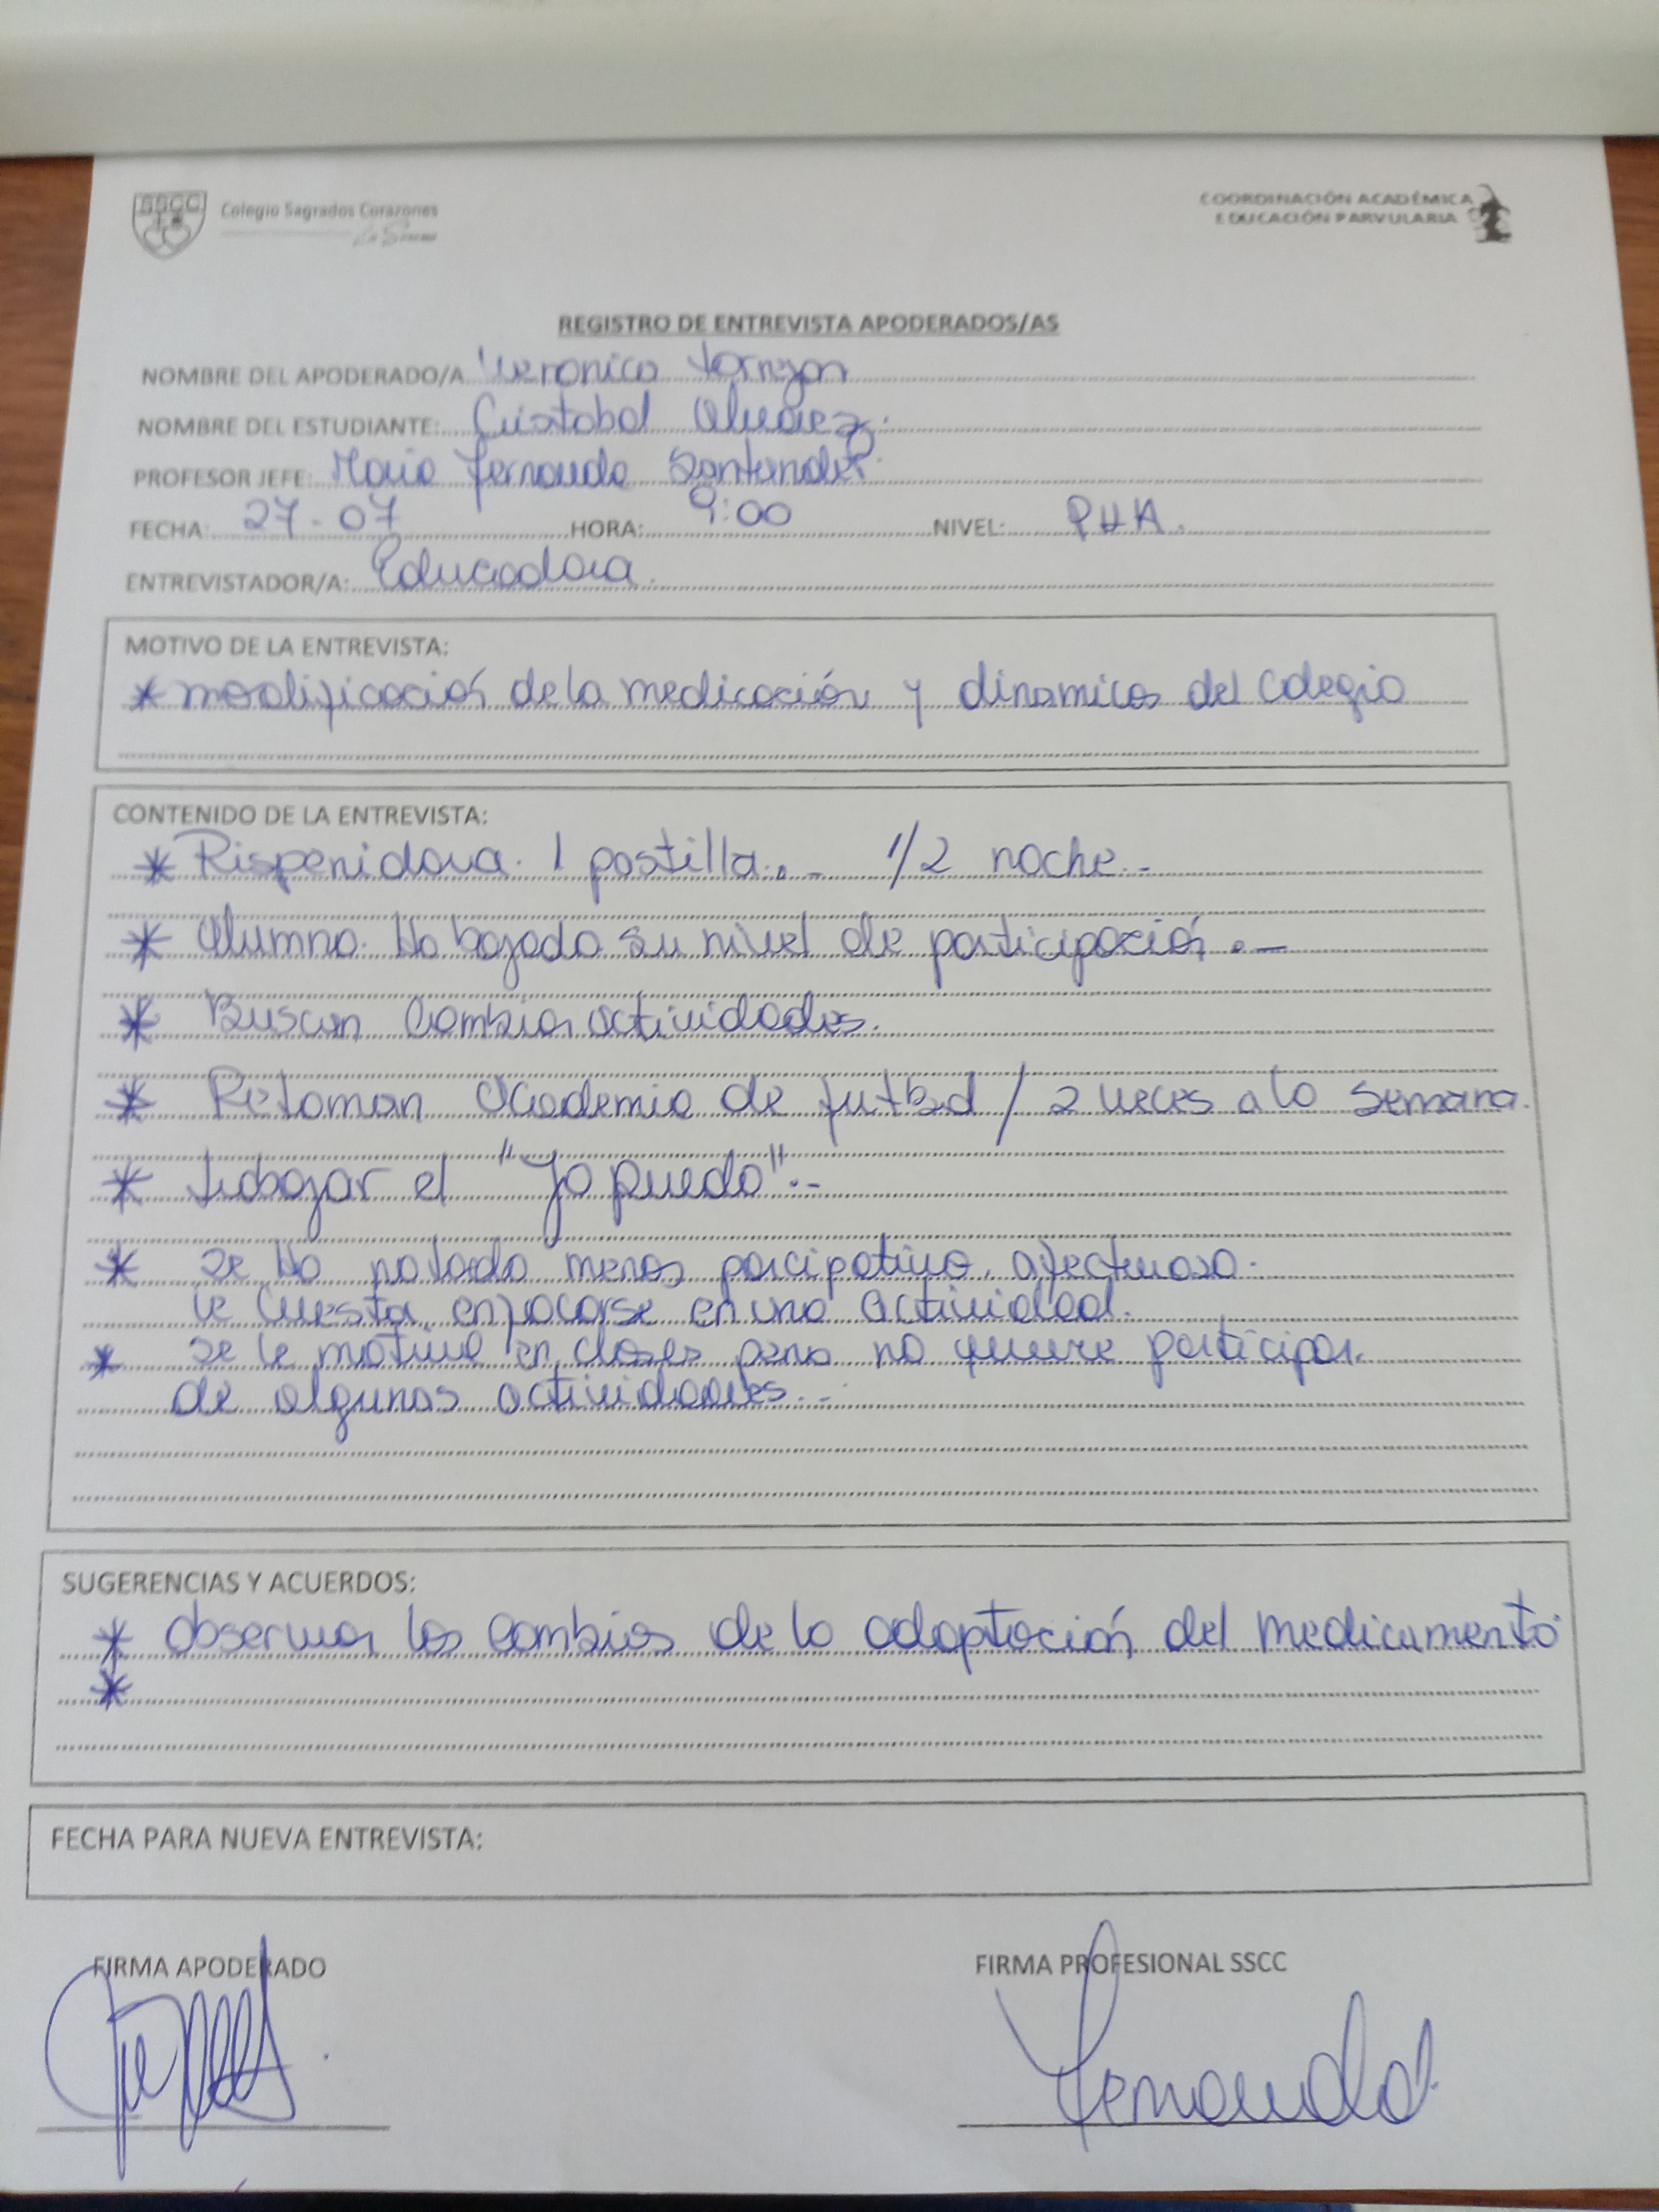 SSCC
Colegio Sagrados Corazones
La Serena
COORDINACIÓN ACADÉMICA
EDUCACIÓN PARVULARIA
REGISTRO DE ENTREVISTA APODERADOS/AS
NOMBRE DEL APODERADO/A Veronica Torrejon
NOMBRE DEL ESTUDIANTE: Cristobal Alvarez.
PROFESOR JEFE: Maria Fernanda Santander.
FECHA: 27-07 HORA: 9:00 NIVEL: PKA.
ENTREVISTADOR/A: Educadora.
MOTIVO DE LA ENTREVISTA:
* modificación de la medicación y dinamicas del colegio
CONTENIDO DE LA ENTREVISTA:
* Risperidona. 1 pastilla.. - 1/2 noche..-
* Alumno. Ha bajado su nivel de participación.-
* Buscan Cambiar actividades.
* Retoman Academia de futbol / 2 veces a la semana.
* trabajar el "Yo puedo".-
* se Ha notado menos parcipativo, afectuoso.
le cuesta enfocarse en una actividad.
* se le motiva en clases pero no quiere participar.
de algunas actividades..-
SUGERENCIAS Y ACUERDOS:
* observar los cambios de la adaptación del medicamento
*
FECHA PARA NUEVA ENTREVISTA:
FIRMA APODERADO FIRMA PROFESIONAL SSCC
Fernanda